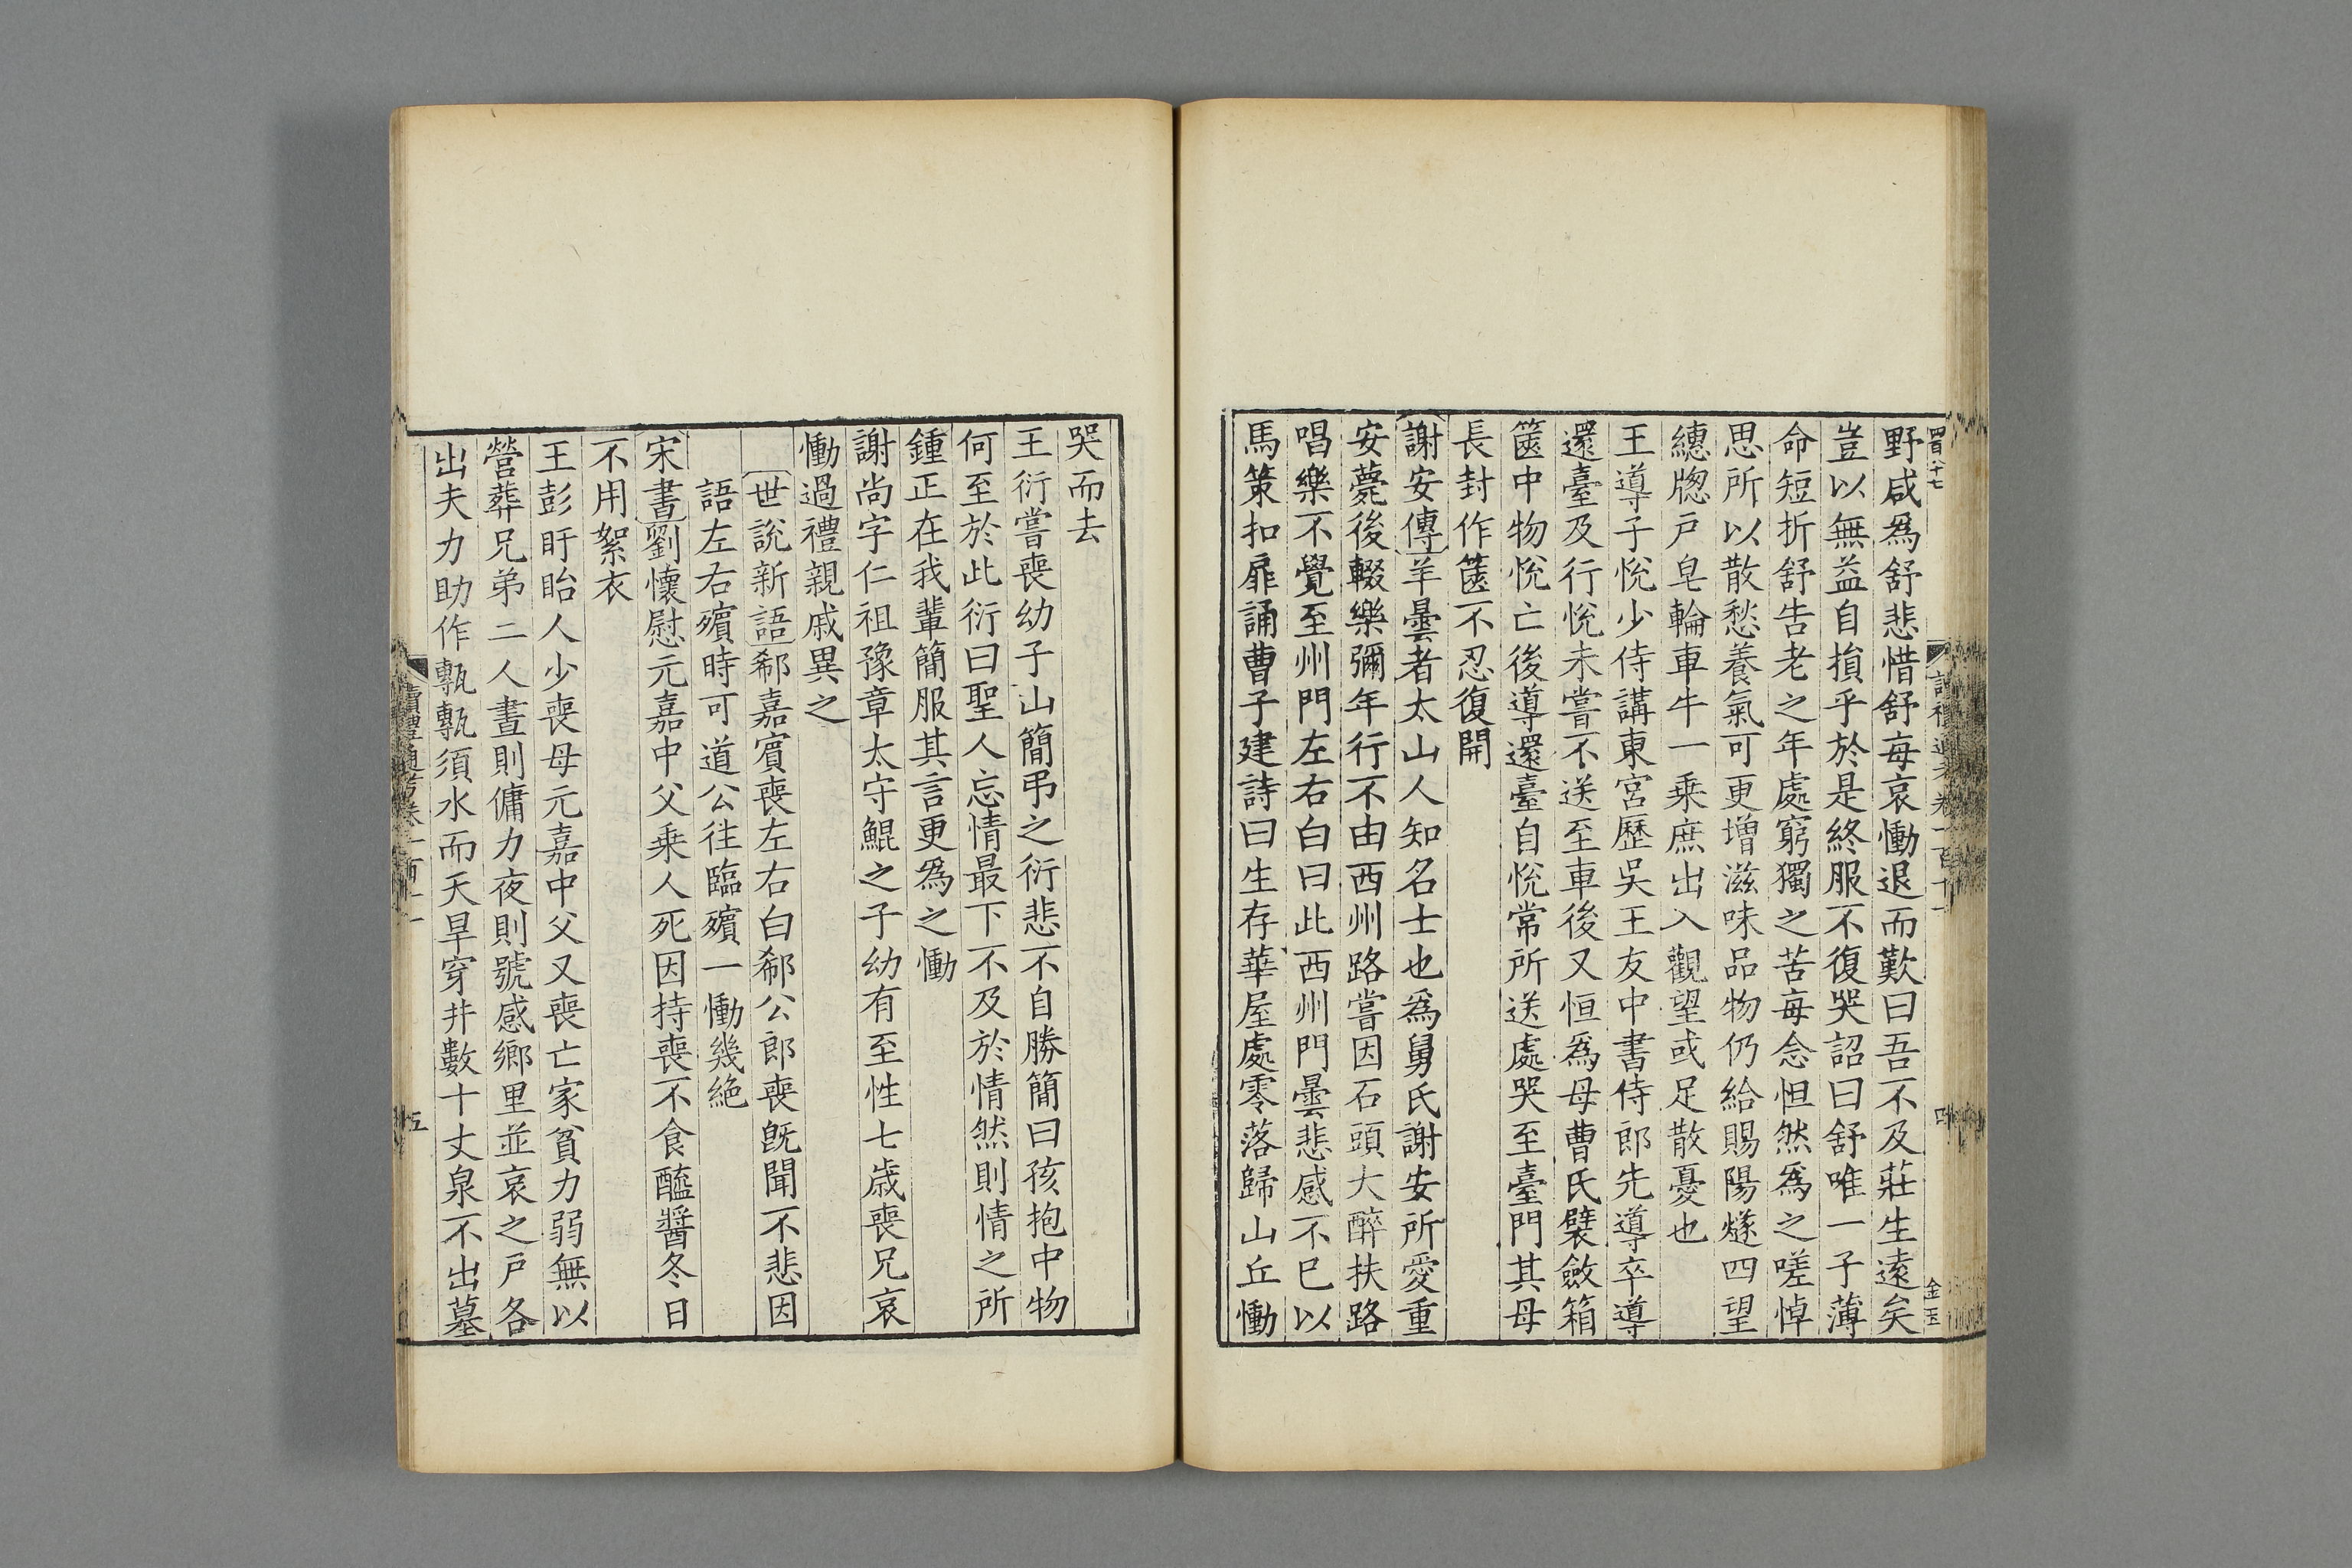 四百十七
野咸爲舒悲惜舒每哀慟退而歎曰吾不及莊生遠矣
豈以無益自損乎於是終服不復哭詔曰舒唯一子薄
命短折舒告老之年處窮獨之苦每念怛然爲之嗟悼
思所以散愁養氣可更增滋味品物仍給賜陽燧四望
繐牕戶皂輪車牛一乗庶出入觀望或足散憂也
王導子悅少侍講東宮歷吳王友中書侍郎先導卒導
還臺及行悅未嘗不送至車後又恒爲母曹氏襞斂箱
篋中物悅亡後導還臺自悅常所送處哭至臺門其母
長封作篋不忍復開
謝安傳羊曇者太山人知名士也爲舅氏謝安所愛重
安薨後輟樂彌年行不由西州路嘗因石頭大醉扶路
唱樂不覺至州門左右白曰此西州門曇悲感不已以
馬策扣扉誦曹子建詩曰生存華屋處零落歸山丘慟
哭而去
王衍嘗喪幼子山簡弔之衍悲不自勝簡曰孩抱中物
何至於此衍曰聖人忘情最下不及於情然則情之所
鍾正在我輩簡服其言更爲之慟
謝尚字仁祖豫章太守鯤之子幼有至性七歲喪兄哀
慟過禮親戚異之
世說新語郗嘉賓喪左右白郗公郎喪旣聞不悲因
語左右殯時可道公往臨殯一慟幾絕
宋書劉懷慰元嘉中父乗人死因持喪不食醢醬冬日
不用絮衣
王彭盱眙人少喪母元嘉中父又喪亡家貧力弱無以
營葬兄弟二人晝則傭力夜則號感鄉里並哀之戶各
出夫力助作甎甎須水而天旱穿井數十丈泉不出墓
讀禮通考卷一百十一
四
金玉
五